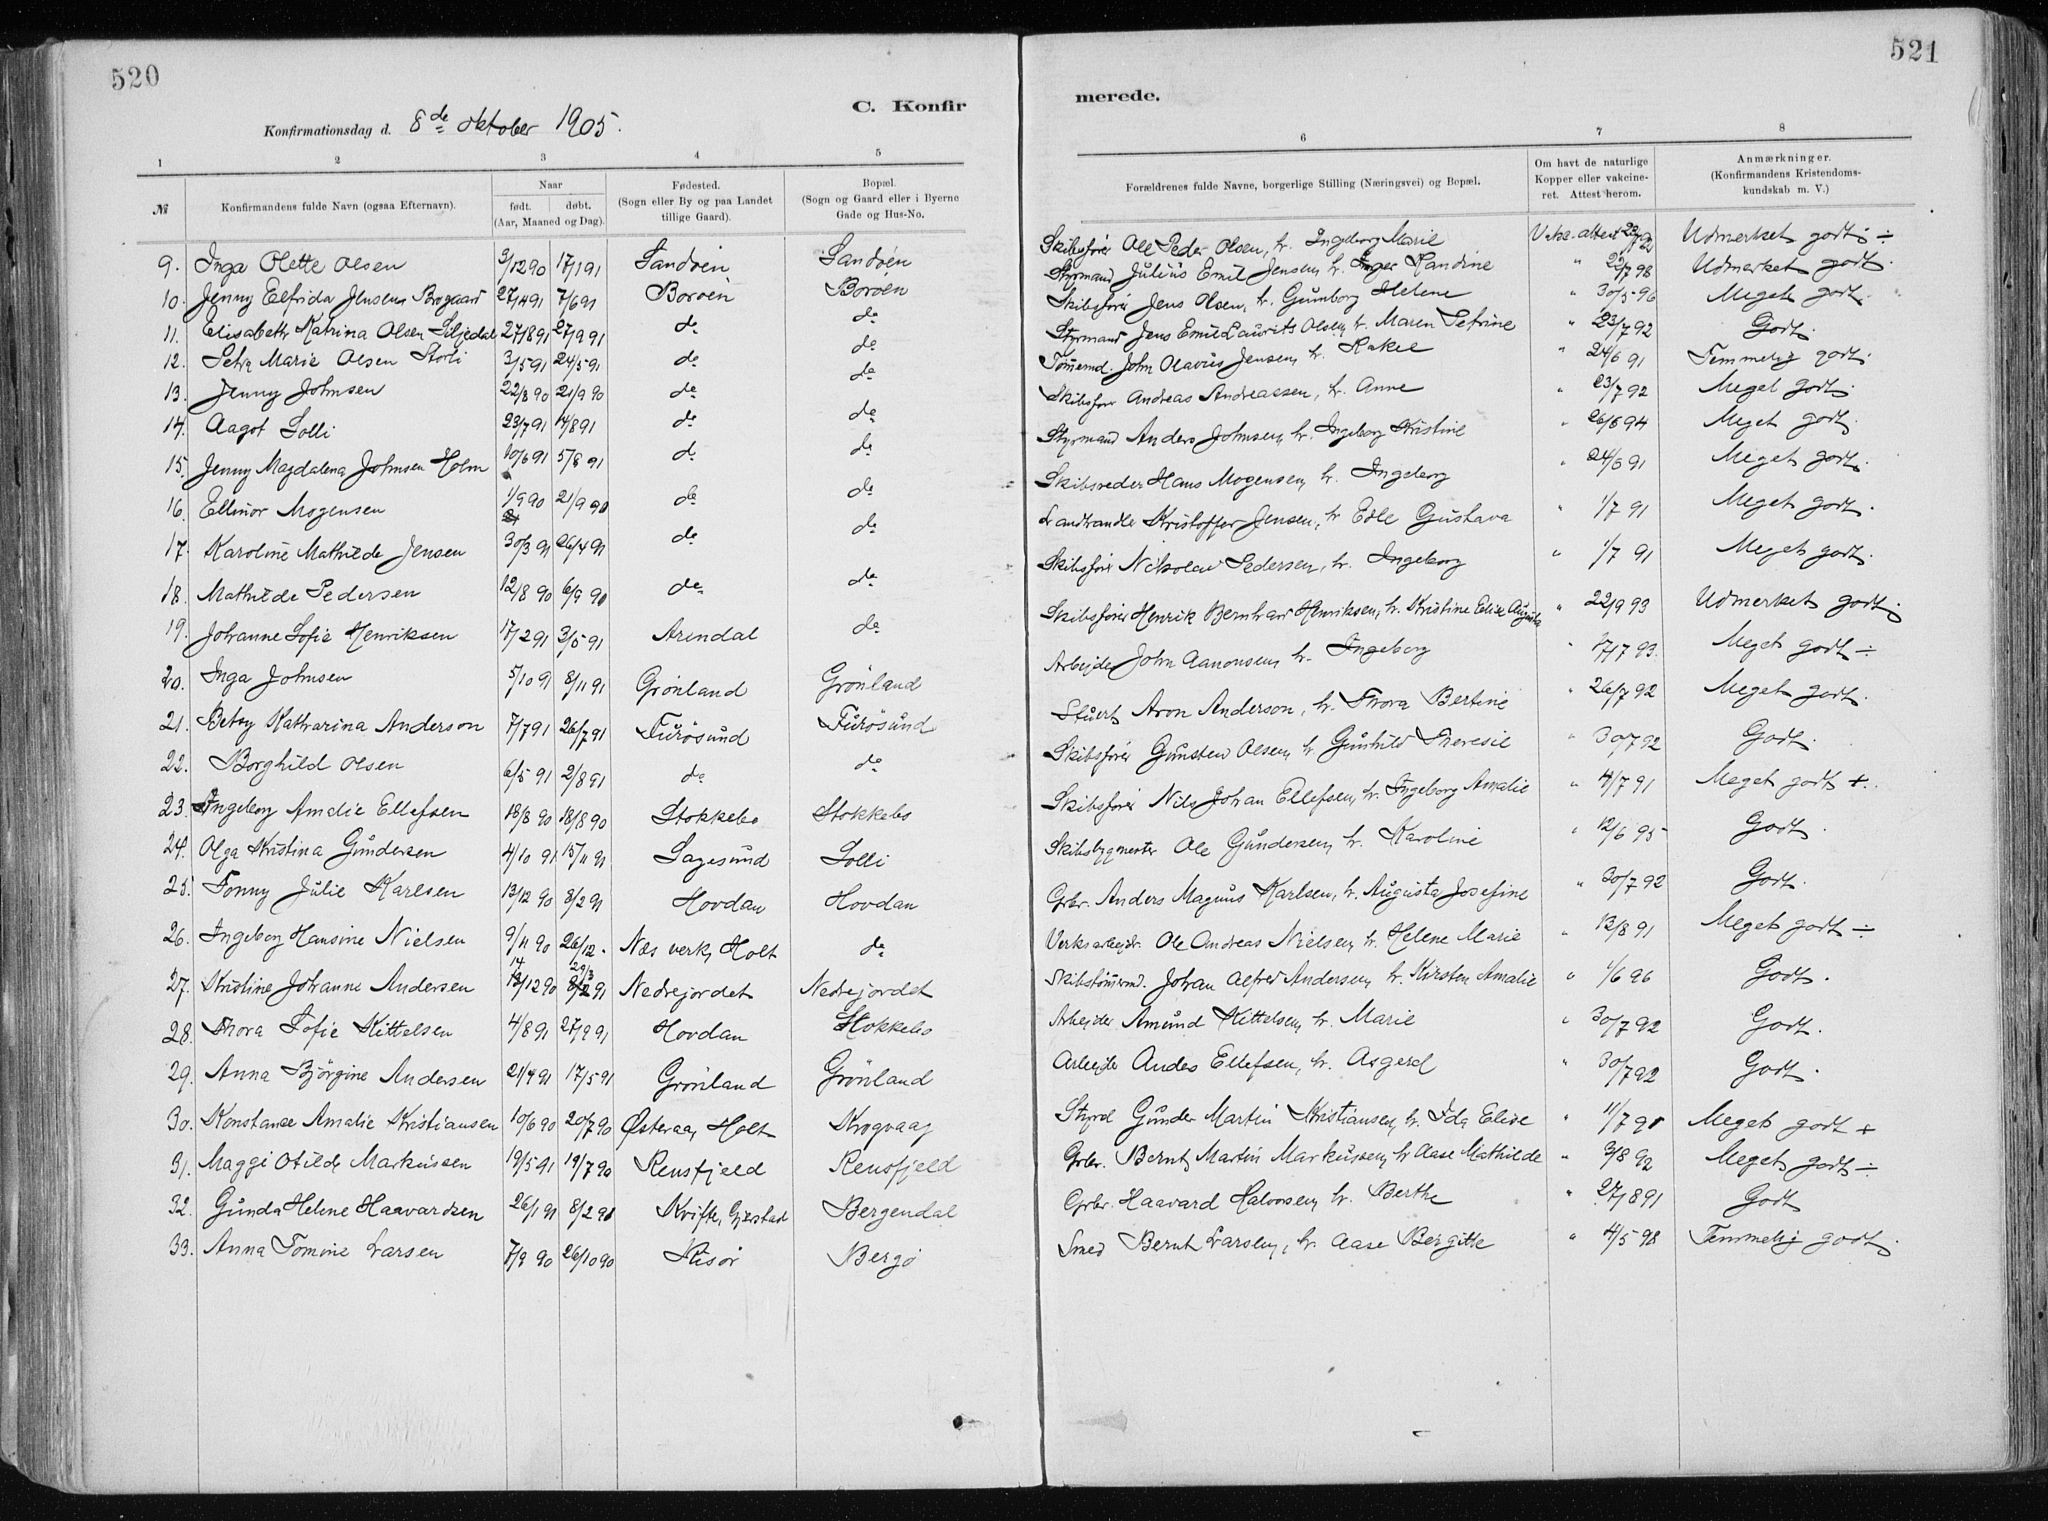 520
C. Konfir
Konfirmationsdag d. 8de oktober 1905.
1 2 3 4 5
№ Konfirmandens fulde Navn (ogsaa Efternavn). Naar født. døbt. (Aar, Maaned og Dag). Fødested. (Sogn eller By og paa Landet tillige Gaard). Bopæl. (Sogn og Gaard eller i Byerne Gade og Hus-No.
9. Inga Olette Olsen 3/12 90 17/1 91 Sandøen Sandøen
10. Jenny Elfrida Jensen Brogaard 27/4 91 7/6 91 Borøen Borøen
11. Elisabeth Katrina Olsen Liljedal 27/8 91 27/9 91 do do
12. Petra Marie Olsen Storli 3/5 91 24/5 91 do do
13. Jenny Johnsen 22/8 90 21/9 90 do do
14. Aagot Solli 23/7 91 14/8 91 do do
15. Jenny Magdalena Johnsen Holm 10/6 91 5/8 91 do do
16. Ellinor Mogensen 1/9 90 21/9 90 do do
17. Karoline Mathilde Jensen 30/3 91 26/4 91 do do
18. Mathilde Pedersen 12/8 90 6/9 90 do do
19. Johanne Sofie Henriksen 17/2 91 3/5 91 Arendal do
20. Inga Johnsen 5/10 91 8/11 91 Grønland Grønland
21. Betsy Katharina Anderson 7/7 91 26/7 91 Furøsund Furøsund
22. Borghild Olsen 6/5 91 2/8 91 do do
23. Ingeborg Amalie Ellefsen 18/8 90 18/8 90 Stokkebo Stokkebo
24. Olga Kristina Gundersen 4/10 91 15/11 91 Sagesund Solli
25. Fonny Julie Karlsen 13/12 90 8/2 91 Hovdan Hovdan
26. Ingeborg Hansine Nielsen 9/11 90 26/12 - Næs verk, Holt do
27. Kristine Johanne Andersen 14/12 90 29/3 91 Nedrejordet Nedrejordet
28. Thora Sofie Kittelsen 4/8 91 27/9 91 Hovdan Stokkebo
29. Anna Bjørgine Andersen 21/4 91 17/5 91 Grønland Grønland
30. Konstanse Amalie Kristiansen 10/6 90 20/7 90 Østeraa, Holt Krogvaag
31. Maggi Otilde Markussen 19/5 91 19/7 90 Rensfjeld Rensfjeld
32. Gunda Helene Haavardsen 26/1 91 8/2 91 Kvifte, Gjerstad Bergendal
33. Anna Tomine Larsen 7/9 90 26/10 90 Risør Bergø
521
merede.
6 7 8
Forældrenes fulde Navne, borgerlige Stilling (Næringsvei) og Bopæl. Om havt de naturlige Kopper eller vakcineret. Attest herom. Anmærkninger. (Konfirmandens Kristendomskundskab m. V.)
Skibsfører Ole Peder Olsen, h. Ingeborg Marie Vakc. attest 22/7 92 Udmerket godt ÷
Styrmand Julius Emil Jensen, h. Inger Randine " 22/7 98 Udmerket godt.
Skibsfører Jens Olsen, h. Gunborg Helene " 30/5 96 Meget godt.
Styrmand Jens Emil Laurits Olsen, h. Maren Petrine " 23/7 92 Godt.
Tømmermd. John Olavus Jensen, h. Rakel " 24/6 91 Temmelig godt.
Skibsfører Andreas Andreassen, h. Anne " 23/7 92 Meget godt.
Styrmand Anders Johnsen, h. Ingeborg Kristine " 26/6 94 Meget godt.
Skibsreder Hans Mogensen, h. Ingeborg " 24/6 91 Meget godt.
Landhandler Kristoffer Jensen, h. Edle Gustava " 1/7 91 Meget godt.
Skibsfører Nikolai Pedersen, h. Ingeborg " 1/7 91 Meget godt.
Skibsfører Henrik Bernhard Henriksen, h. Kristine Elise Augusta " 22/9 93 Udmerket godt.
Arbejder John Aanonsen, h. Ingeborg " 17/7 93. Meget godt ÷
Stuert Aron Anderson, h. Thora Bertine " 26/7 92 Meget godt.
Skibsfører Gunsten Olsen, h. Gunhild Theresie " 30/7 92 Godt.
Skibsfører Nils Johan Ellefsen, h. Ingeborg Amalie " 4/7 91 Meget godt +.
Skibsbygmester Ole Gundersen, h. Karoline " 12/6 95 Godt.
Grbr. Anders Magnus Karlsen, h. Augusta Josefine " 30/7 92 Godt.
Verksarbejdr. Ole Andreas Nielsen, h. Helene Marie " 12/8 91 Meget godt ÷
Skibstømmermd. Johan Alfred Andersen, h. Kirsten Amalie " 1/6 96 Godt.
Arbejder Amund Kittelsen, h. Marie " 30/7 92 Godt.
Arbejder Andes Ellefsen, h. Asgerd " 30/7 92 Godt.
Styrd Gunder Martin Kristiansen, h. Ida Elise " 11/7 91 Meget godt +
Grbr. Bernt Martin Markussen, h. Aase Mathilde " 3/8 92 Meget godt ÷
Grbr. Haavard Halvorsen, h. Berthe " 27/8 91 Godt
Smed Bernt Larsen, h. Aase Bergitte " 4/5 98 Temmelig godt.